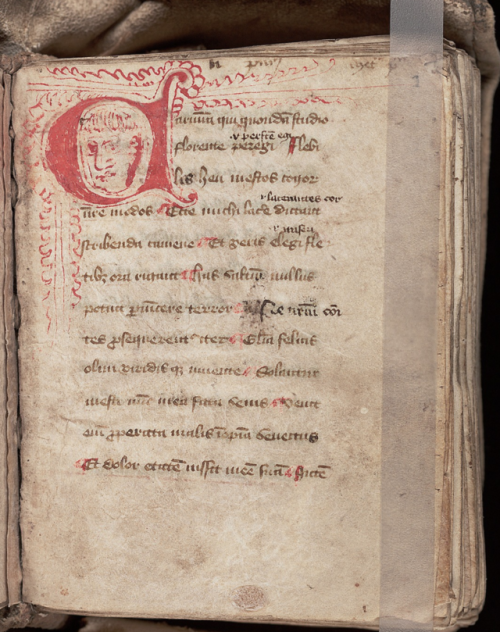 Carmina qui quondā studio
florente peregi Flebi
lis heu mestos cogor
inire modos Ecce michi lacere dictant
scribenda camene Et veris elegi fle
tibꝫ ora rigant Has saltim nullus
potuit ꝑuincere terror Ne nr̄m com̄
tes ꝓsequerent᷑ iter Gl̄ia felicis
olim viridis qꝫ iuuente Solantur
mesti nūc mea fata senis Venit
em̄ ꝓperata malis īopina senectus
Et dolor etatē iussit inēē suā Intē